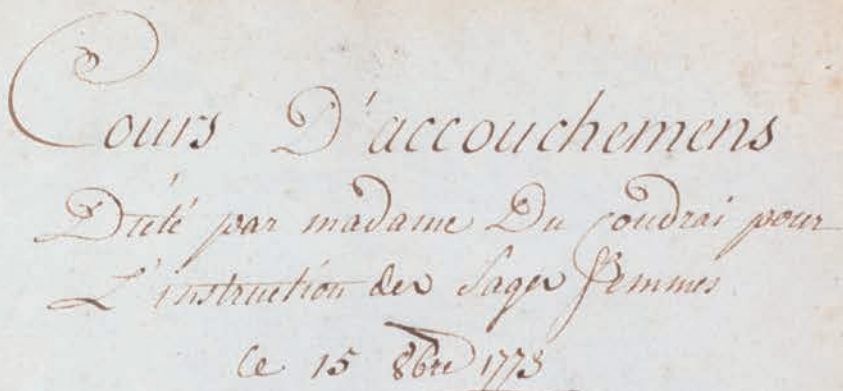 Cours D'accouchemens
Dicté par madame Du coudrai pour
L'instruction des Sages femmes
ce 15 8bre 1773